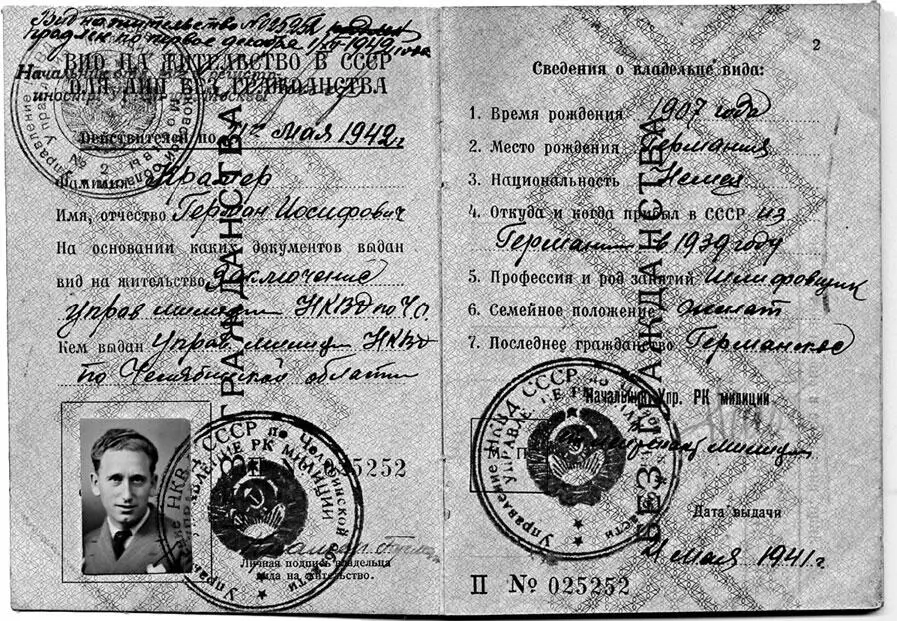 Вид на жительство № 025252
продлен по первое декабря 1/XII-1942 года
ВИД НА ЖИТЕЛЬСТВО В СССР
ДЛЯ ЛИЦ БЕЗ ГРАЖДАНСТВА
Действителен по 1го Мая 1942 г.
Фамилия
Имя, отчество Герман Иосифович
На основании каких документов выдан
вид на жительство заключение
управ милиции НКВД по Ч.О.
Кем выдан Управ милиции НКВД
по Челябинской области
БЕЗ ГРАЖДАНСТВА
№ 025252
Личная подпись владельца
вида на жительство.
2
Сведения о владельце вида:
1. Время рождения 1907 года
2. Место рождения Германия
3. Национальность Немец
4. Откуда и когда прибыл в СССР из
Германии в 1939 году
5. Профессия и род занятий Шлифовщик
6. Семейное положение женат
7. Последнее гражданство Германское
БЕЗ ГРАЖДАНСТВА
Начальник Упр. РК милиции
М. П.
Дата выдачи
Мая 1941 г.
II № 025252